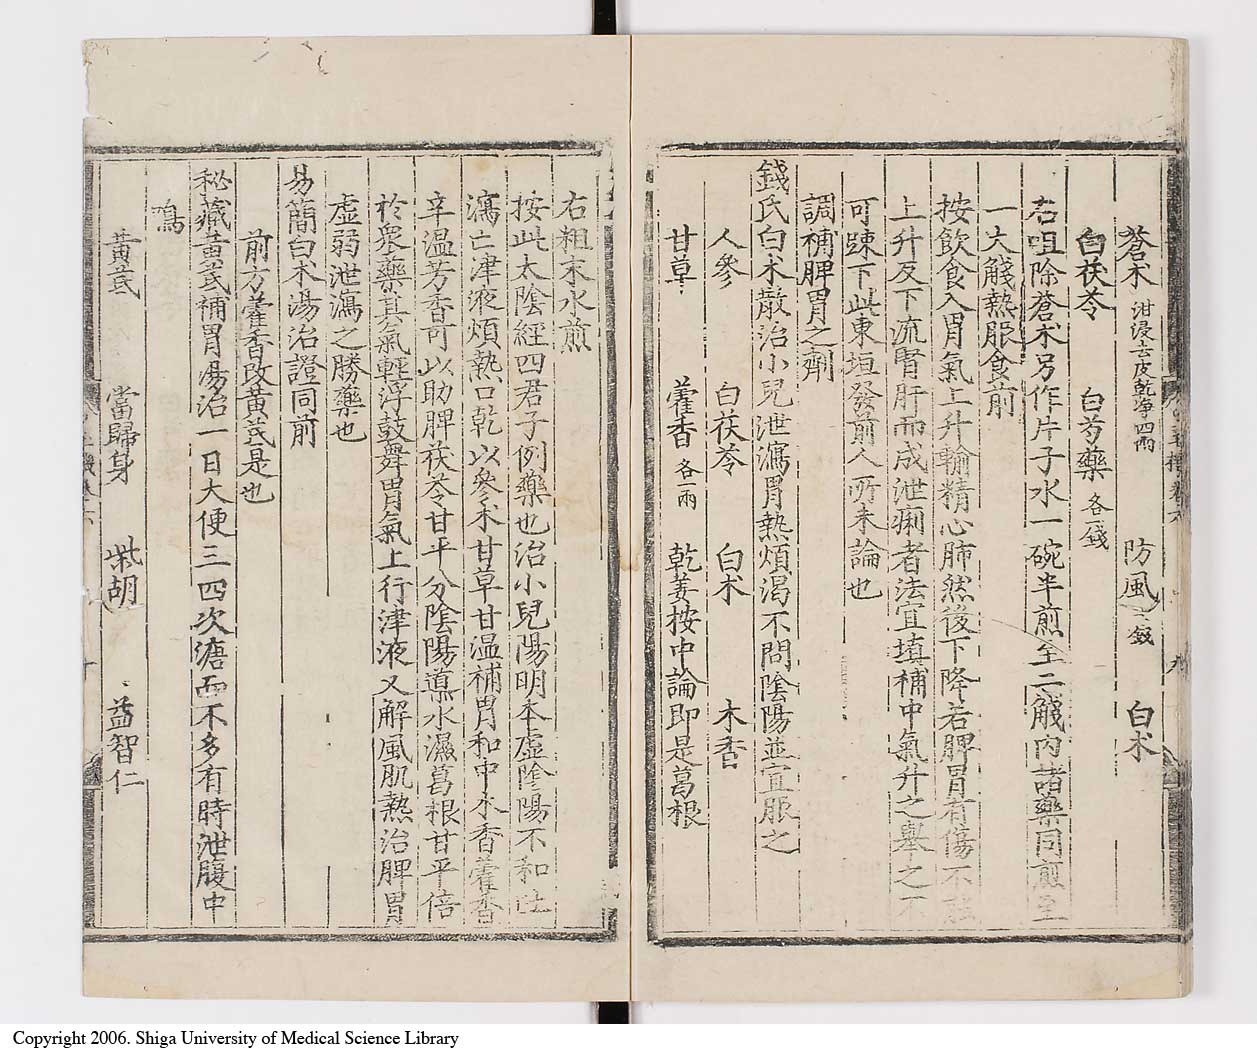 蒼朮 泔浸去皮乾净四兩 防風二錢 白朮
白茯苓 白芍藥 各一錢
右咀除蒼朮另作片子水一碗半煎至二觥内諸藥同煎至
一大觥熱服食前
按飲食入胃氣上升輸精心肺然後下降若脾胃有傷不能
上升反下流腎肝而成泄痢者法宜塡補中氣升之舉之不
可踈下此東垣發前人所未論也
調補脾胃之劑
錢氏白朮散治小兒泄瀉胃熱煩渴不問陰陽並宜服之
人參 白茯苓 白朮 木香
甘草 藿香 各一兩 乾姜按中論即是葛根
右粗末水煎
按此太陰經四君子例藥也治小兒陽明本虛陰陽不和吐
瀉亡津液煩熱口乾以參朮甘草甘温補胃和中木香藿香
辛温芳香可以助脾茯苓甘平分陰陽導水濕葛根甘平倍
於衆藥其氣輕浮鼓舞胃氣上行津液又解風肌熱治脾胃
虛弱泄瀉之勝藥也
易簡白朮湯治證同前
前方藿香改黃芪是也
秘藏黃芪補胃湯治一日大便三四次溏而不多有時泄腹中
鳴
黃芪 當歸身 柴胡 益智仁
Copyright 2006. Shiga University of Medical Science Library